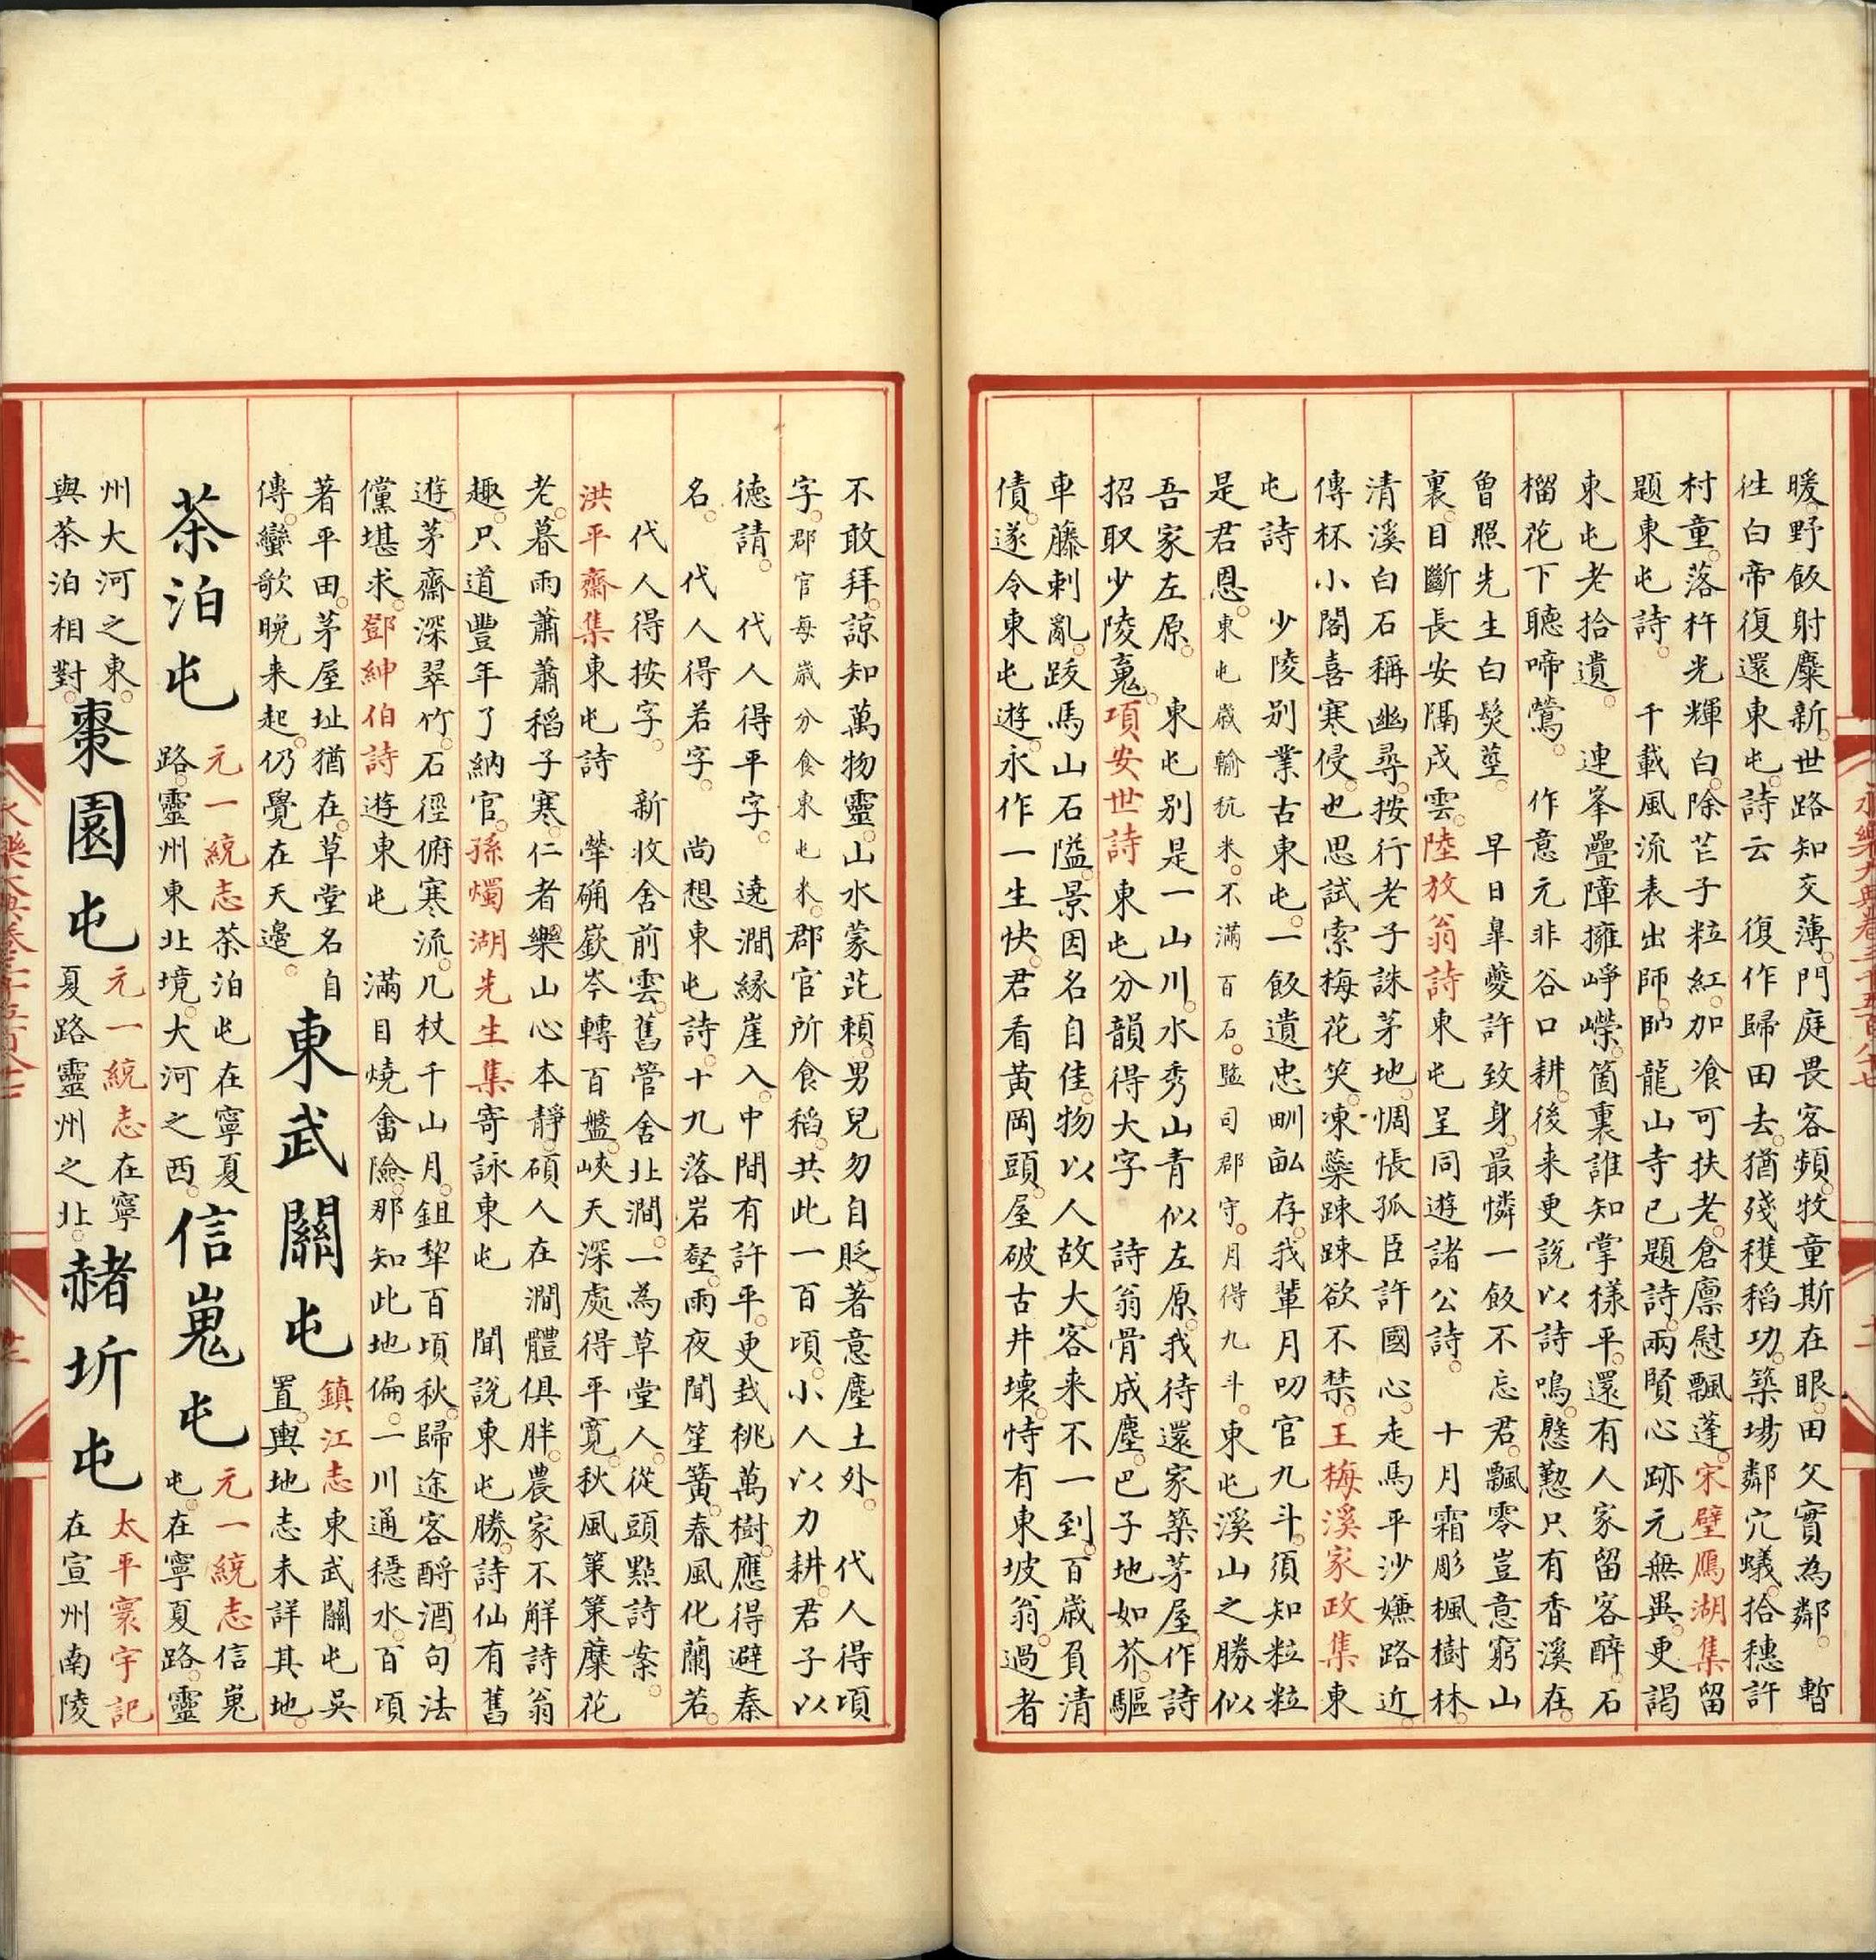 暖。野飯射麋新。世路知交薄。門庭畏客頻。牧童斯在眼。田父實為鄰。　暫
往白帝復還東屯。詩云　復作歸田去。猶殘穫稻功。築場鄰穴蟻。拾穗許
村童。落杵光輝白。除芒子粒紅。加飡可扶老。倉廪慰飄蓬。宋壁鴈湖集留
題東屯詩。　千載風流表出師。師龍山寺已題詩。兩賢心跡元無異。更謁
東屯老拾遺。　連峯疊障擁崢嶸。箇裏誰知掌樣平。還有人家留客醉。石
榴花下聽啼鶯。　作意元非谷口耕。後来更說以詩鳴。慇懃只有香溪在。
曾照先生白髮莖。　早日臯夔許致身。最憐一飯不忘君。飄零豈意窮山
裏。目斷長安隔戍雲。陸放翁詩東屯呈同遊諸公詩。　十月霜彫楓樹林。
清溪白石稱幽尋。按行老子誅茅地。惆悵孤臣許國心。走馬平沙嫌路近。
傳杯小閣喜寒侵。也思試索梅花笑。凍藥踈踈欲不禁。王梅溪家政集東
屯詩　少陵別業古東屯。一飯遺忠畎畝存。我輩月叨官九斗。須知粒粒
是君恩。東屯歲輸秔米。不滿百石。監司郡守。月得九斗。東屯溪山之勝似
吾家左原。　東屯别是一山川。水秀山青似左原。我待還家築茅屋。作詩
招取少陵䰟。項安世詩東屯分韻得大字　詩翁骨成塵。巴子地如芥。驅
車藤刺亂。跋馬山石隘。景因名自佳。物以人故大。客来不一到。百歲負清
債。遂令東屯遊。永作一生快。君看黃岡頭。屋破古井壞。恃有東坡翁。過者
不敢拜。諒知萬物靈。山水蒙茈頼。男兒勿自貶。著意塵土外。　代人得頃
字。郡官每歲分食東屯米。郡官所食稻。共此一百頃。小人以力耕。君子以
德請。　代人得平字。　遶澗緣崖入。中間有許平。更栽桃萬樹。應得避秦
名。　代人得若字。　尚想東屯詩。十九落岩壑。雨夜聞笙簧。春風化蘭若。
代人得按字。　新收舍前雲。舊管舍北澗。一為草堂人。從頭點詩案。
洪平齋集東屯詩　犖确嶔岑轉百盤。峽天深處得平寬。秋風策策蘪花
老。暮雨蕭蕭稻子寒。仁者樂山心本靜。碩人在澗體俱胖。農家不解詩翁
趣。只道豐年了納官。孫燭湖先生集寄詠東屯　聞說東屯勝。詩仙有舊
遊。茅齋深翠竹。石徑俯寒流。几杖千山月。鉏犂百頃秋。歸途客酹酒。句法
儻堪求。鄧紳伯詩　遊東屯　滿目燒畬險。那知此地偏。一川通穩水。百頃
著平田。茅屋址猶在。草堂名自
傳。蠻歌晚来起。仍覺在天邊。
東武關屯
鎮江志東武關屯吳
置。輿地志未詳其地。
茶泊屯
元一統志茶泊屯在寧夏
路。靈州東北境。大河之西。
信嵬屯
元一統志信嵬
屯。在寧夏路。靈
州大河之東。
與茶泊相對。
棗園屯
元一統志在寧
夏路靈州之北。
赭圻屯
太平寰宇記
在宣州南陵